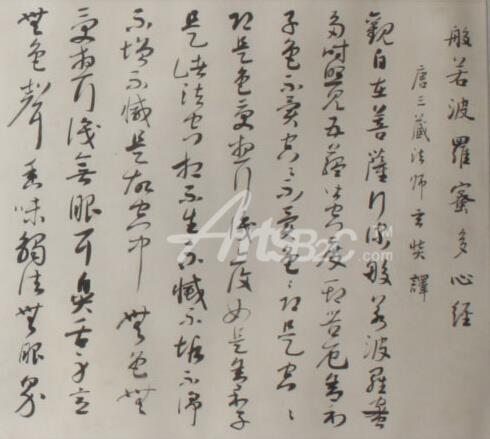 般若波羅蜜多心経
唐三藏法師玄奘譯
觀自在菩薩行深般若波羅蜜
多時照見五蘊皆空度一切苦厄舍利
子色不異空〻不異色〻即是空〻
即是色受想行識亦復如是舍利子
是諸法空相不生不滅不垢不淨
不增不減是故空中無色無
受想行識無眼耳鼻舌身意
無色聲香味觸法無眼界
ArtsB2C.com™